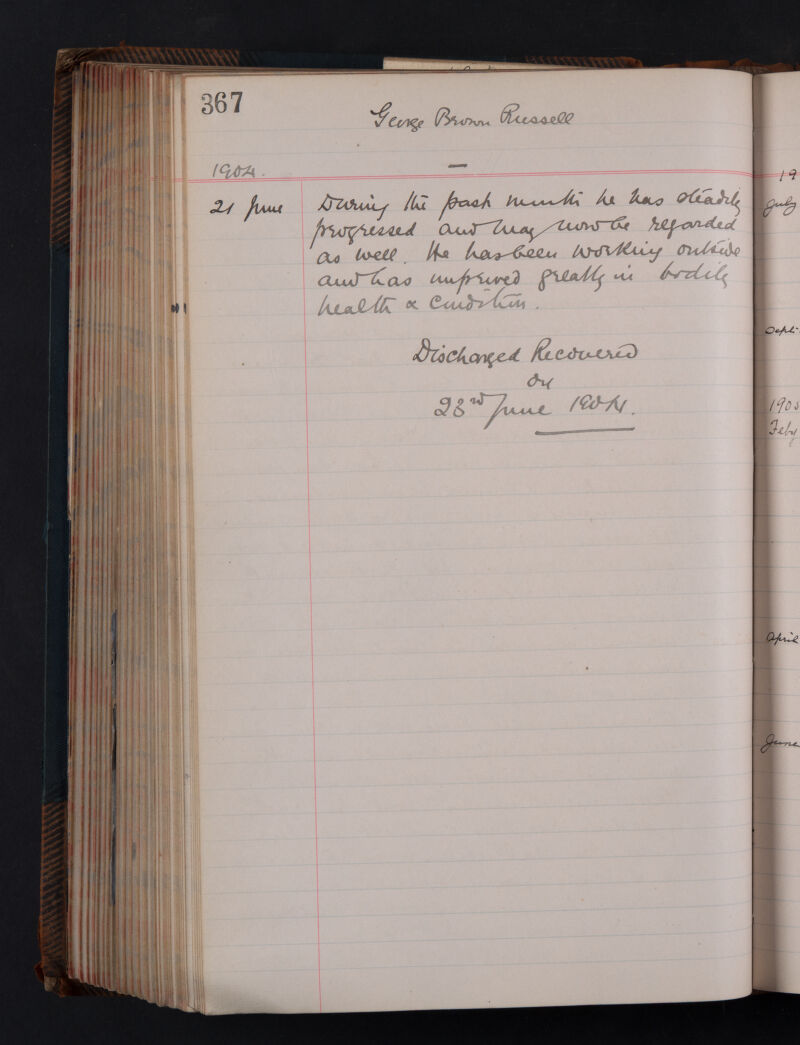 367
George Brown Russell
1904.
21 June During the past month he has steadily
progressed and may now be regarded
as well. He has been working outside
and has improved greatly in bodily
health & condition.
Discharged Recovered
on
23rd June 1904.
19
July
Sept.
1905
Feby
April
June